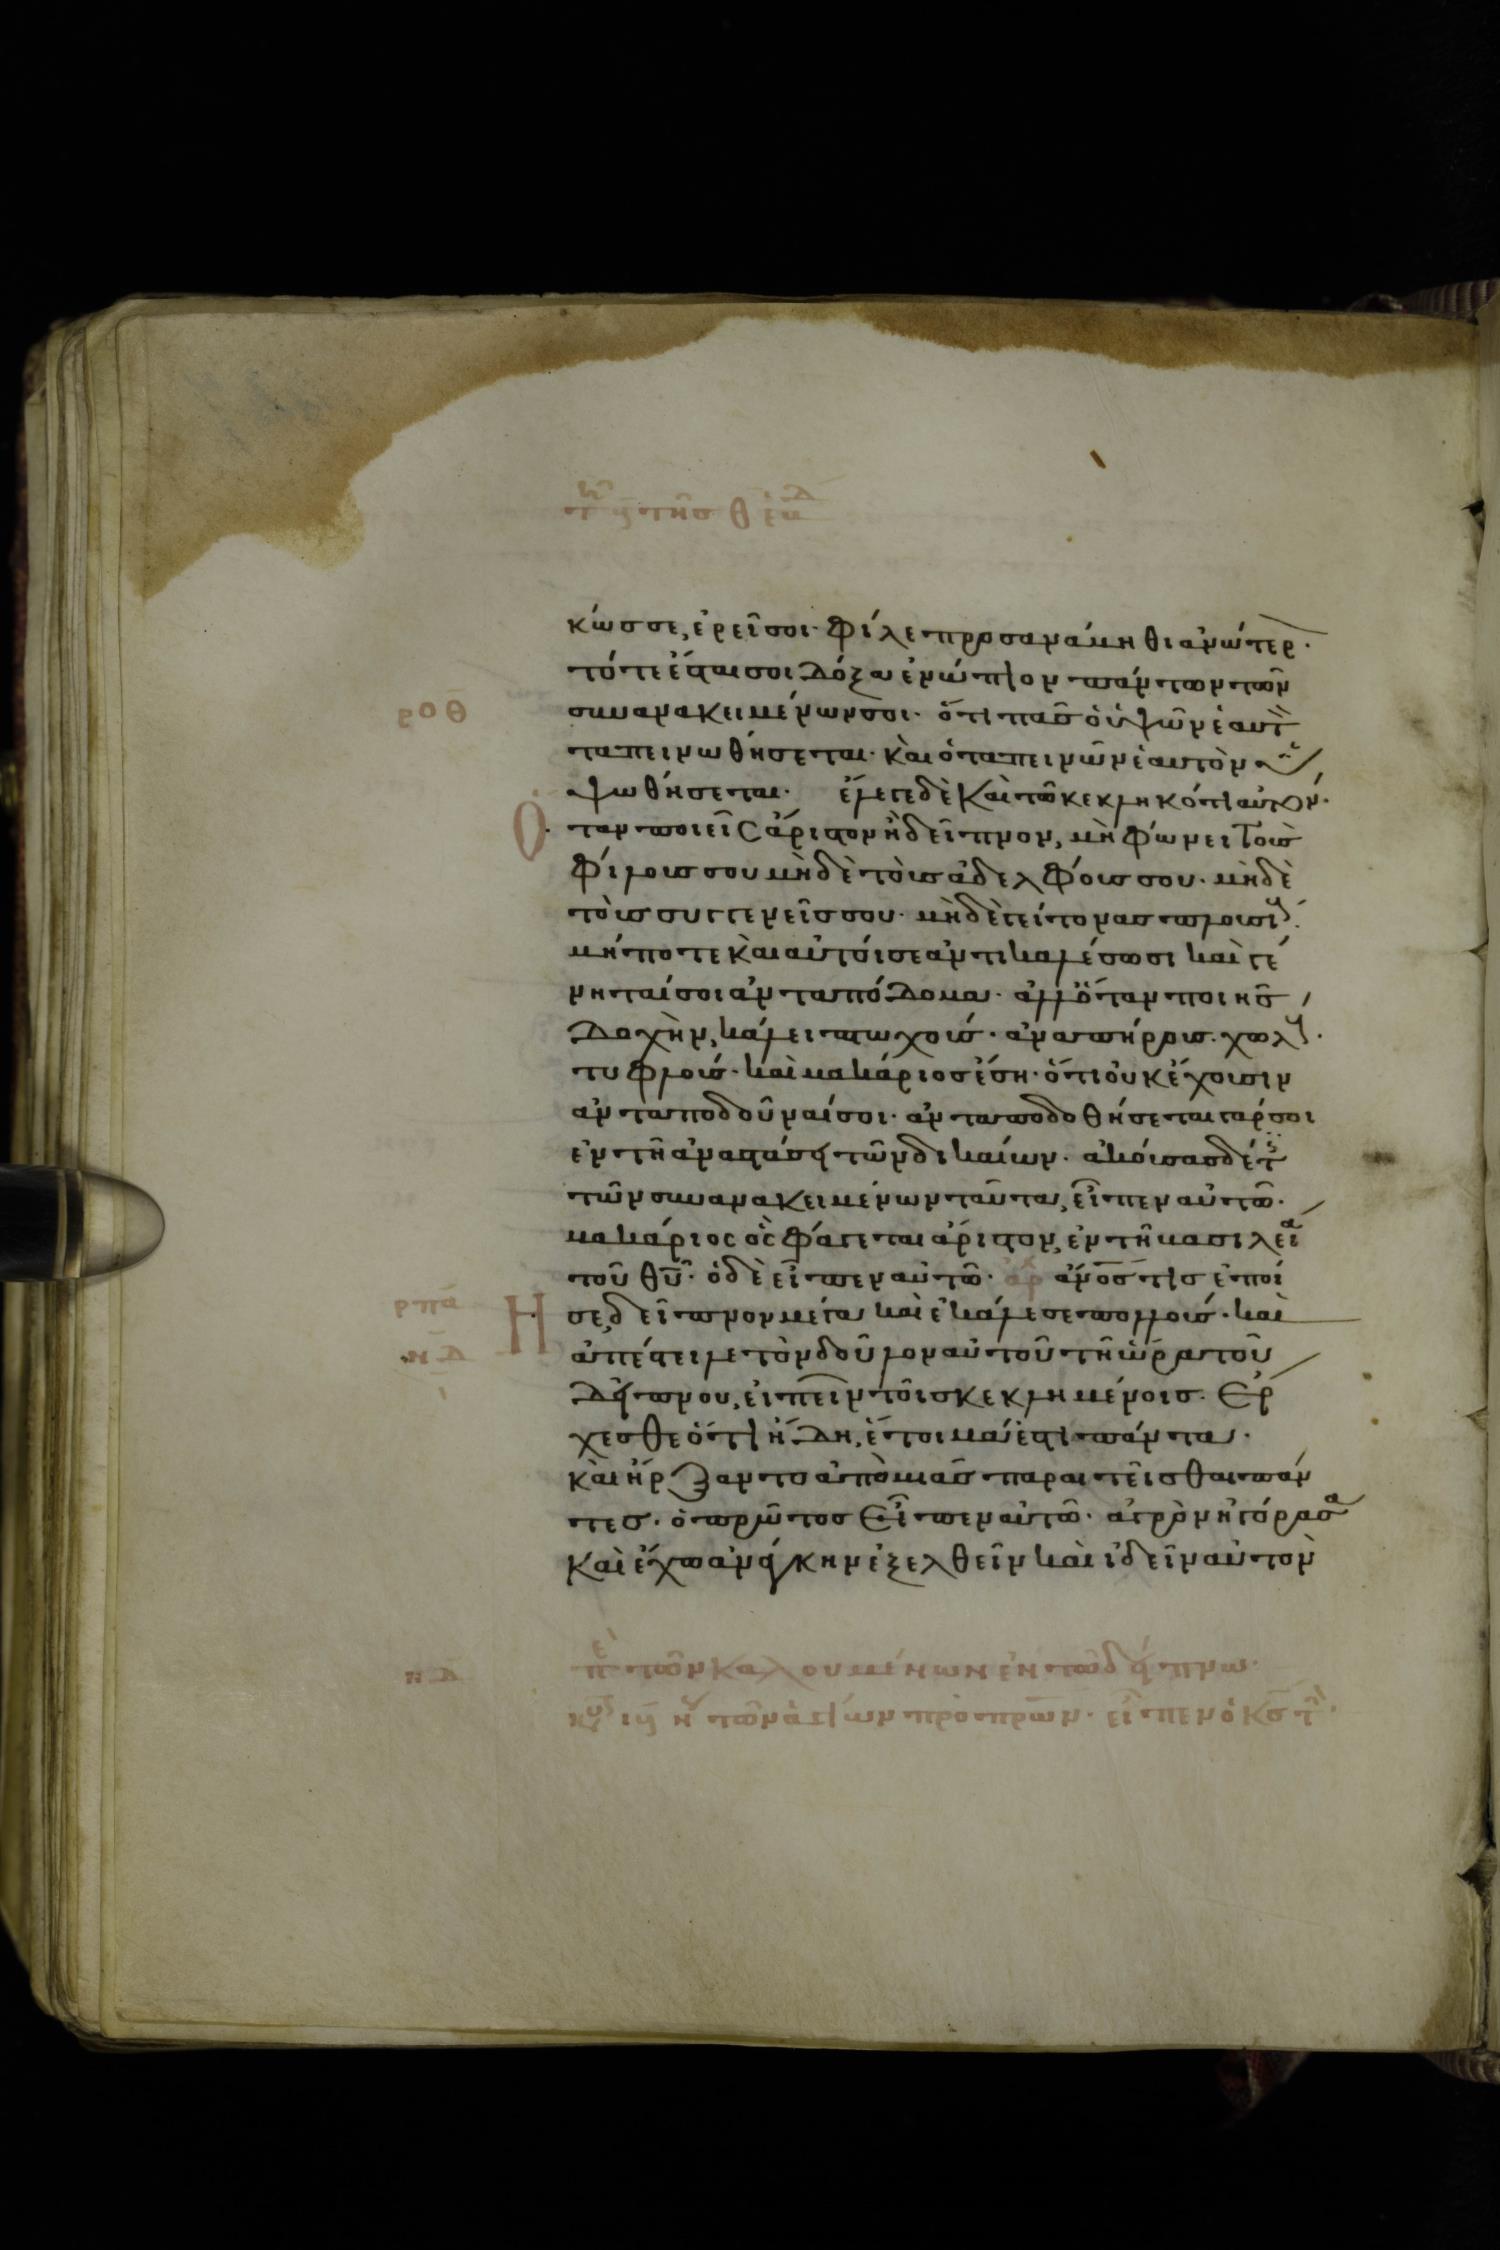 κώς σε, ἐρεῖ σοι· φίλε προσανάβηθι ἀνώτερ·
τότε ἔσται σοι δόξα ἐνώπιον πάντων τῶν
συνανακειμένων σοι· ὅτι πᾶς ὁ ὑψῶν ἑαυτ
ταπεινωθήσεται· καὶ ὁ ταπεινῶν ἑαυτὸν
ὑψωθήσεται· ἔλεγε δὲ καὶ τῶ κεκληκότι αὐτόν·
Ὅταν ποιεῖς ἄριστον ἢ δεῖπνον, μὴ φώνει τοὺς
φίλους σου μηδὲ τοὺς ἀδελφούς σου· μηδὲ
τοὺς συγγενεῖς σου· μηδὲ γείτονας πλουσί
μήποτε καὶ αὐτοί σε ἀντικαλέσωσι καὶ γέ
νηταί σοι ἀνταπόδομα· ἀλλ' ὅταν ποιῆς
δοχὴν, κάλει πτωχούς· ἀναπήρους· χωλ
τυφλούς· καὶ μακάριος ἔση· ὅτι οὐκ ἔχουσιν
ἀνταποδοῦναί σοι· ἀνταποδοθήσεται γάρ σοι
ἐν τῆ ἀναστάσει τῶν δικαίων· ἀκούσας δέ τ
τῶν συνανακειμένων ταῦτα, εἶπεν αὐτῶ·
μακάριος ὃς φάγεται ἄριστον, ἐν τῆ βασιλεί
τοῦ θυ· ὁ δὲ εἶπεν αὐτῶ· ἀρ ἄνος τις ἐποί
ρπα Η σε δεῖπνον μέγα καὶ ἐκάλεσε πολλούς· καὶ
ἀπέστειλε τὸν δοῦλον αὐτοῦ τῆ ὥρα τοῦ
δείπνου, εἰπεῖν τοῖς κεκλημένοις· Ἔρ
χεσθε ὅτι ἤδη, ἕτοιμά ἐστι πάντα·
καὶ ἤρξαντο ἀπὸ μιᾶς παραιτεῖσθαι πάν
τες· ὁ πρῶτος εἶπεν αὐτῶ· ἀγρὸν ἠγόρασ
καὶ ἔχω ἀνάγκην ἐξελθεῖν καὶ ἰδεῖν αὐτὸν
π τῶν καλουμένων ἐν τῶ δείπνω·
τῶν ἁγίων πρὸπρων· εἶπεν ὁ κς τ